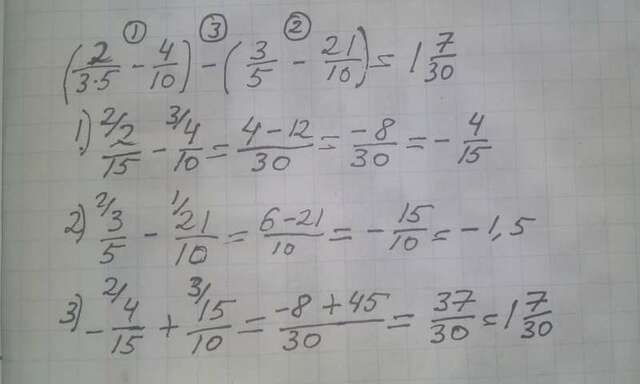 ① ③ ②
(2/3·5 - 4/10) - (3/5 - 21/10) = 1 7/30
1) ²/2/15 - ³/4/10 = 4-12/30 = -8/30 = - 4/15
2) ²/3/5 - ¹/21/10 = 6-21/10 = - 15/10 = -1,5
3) - ²/4/15 + ³/15/10 = -8+45/30 = 37/30 = 1 7/30